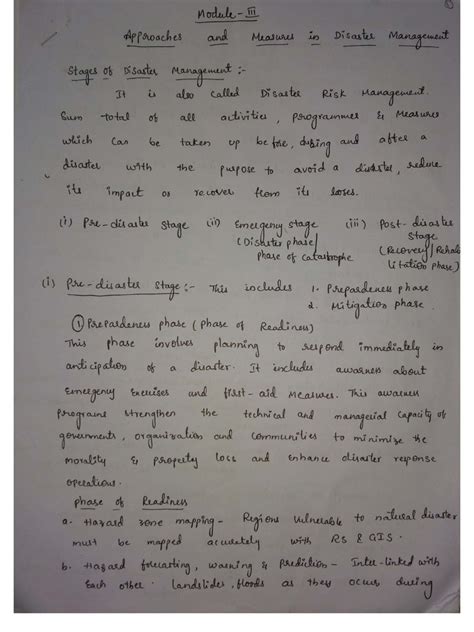 Module - III
Approaches and Measures in Disaster Management
Stages of Disaster Management :-
It is also called Disaster Risk Management.
Sum-total of all activities, programmes & Measures
which can be taken up before, during and after a
disaster with the purpose to avoid a disaster, reduce
its impact or recover from its loses.
(i) Pre-disaster Stage (ii) Emergency stage (iii) Post-disaster
(Disaster phase/ Stage
Phase of Catastrophe (Recovery/Rehabi
litation phase)
(i) Pre-disaster Stage :- This includes 1. Prepardeness phase
2. Mitigation phase.
① Prepardeness phase (Phase of Readiness)
This phase involves planning to respond immediately in
anticipation of a disaster. It includes awarness about
Emergency Exercises and first-aid measures. This awarness
programs strengthen the technical and managerial capacity of
governments, organization and Communities to minimize the
morality & property loss and enhance disaster reponse
operations.
phase of Readiness
a. Hazard zone mapping - Regions vulnerable to natural disaster
must be mapped accurately with RS & GIS.
b. Hazard forecasting, warning & Prediction - Inter-linked with
Each other. landslides, floods as they occur during